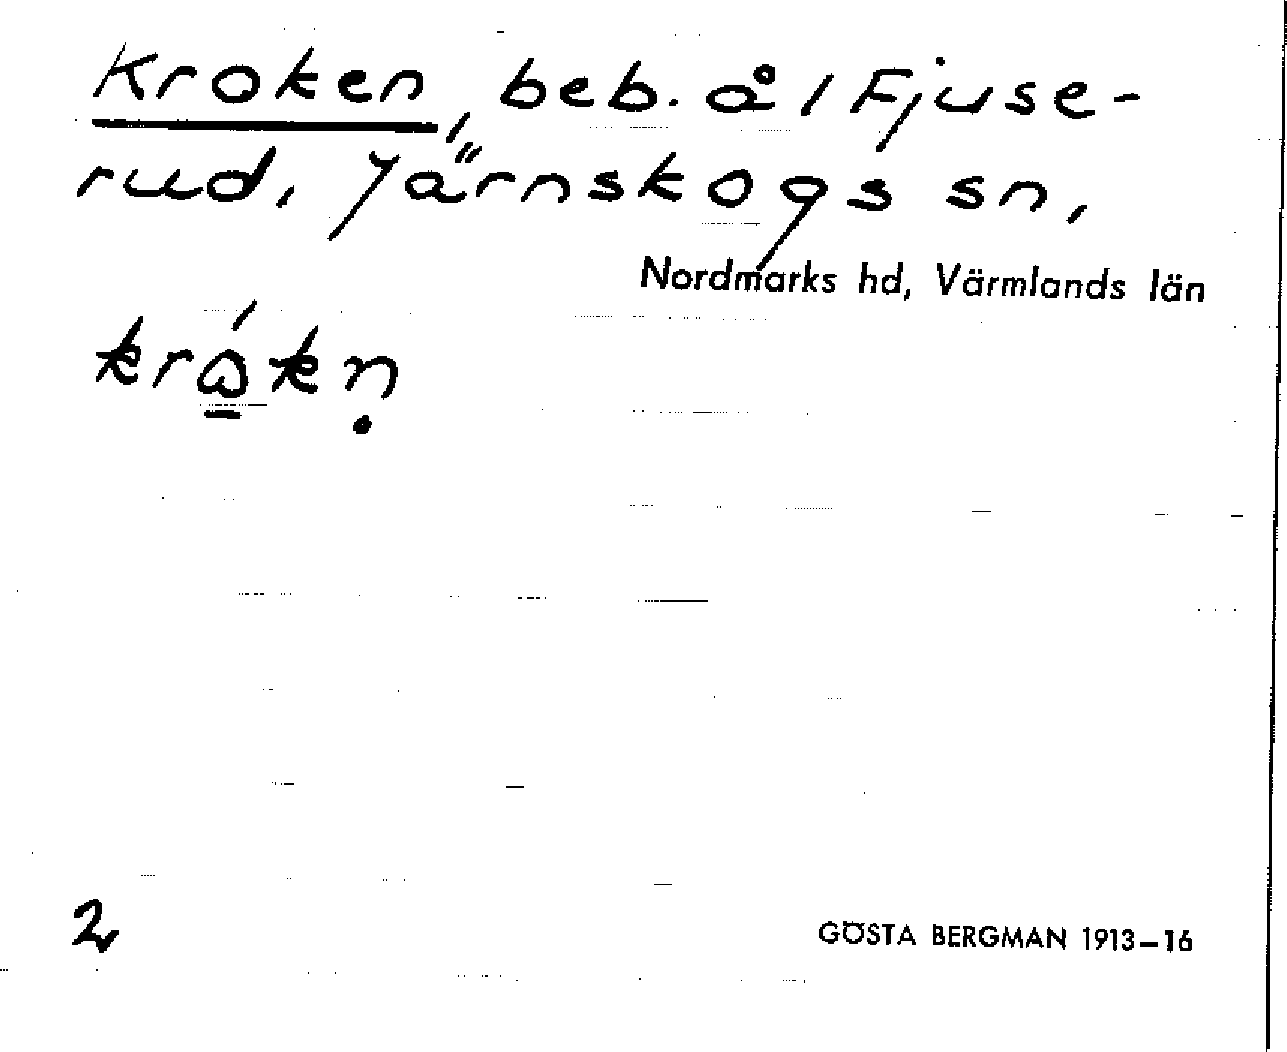 Kroken, beb. å 1 Fjuse-
rud, Järnskogs sn,
Nordmarks hd, Värmlands län
2
GÖSTA BERGMAN 1913–16